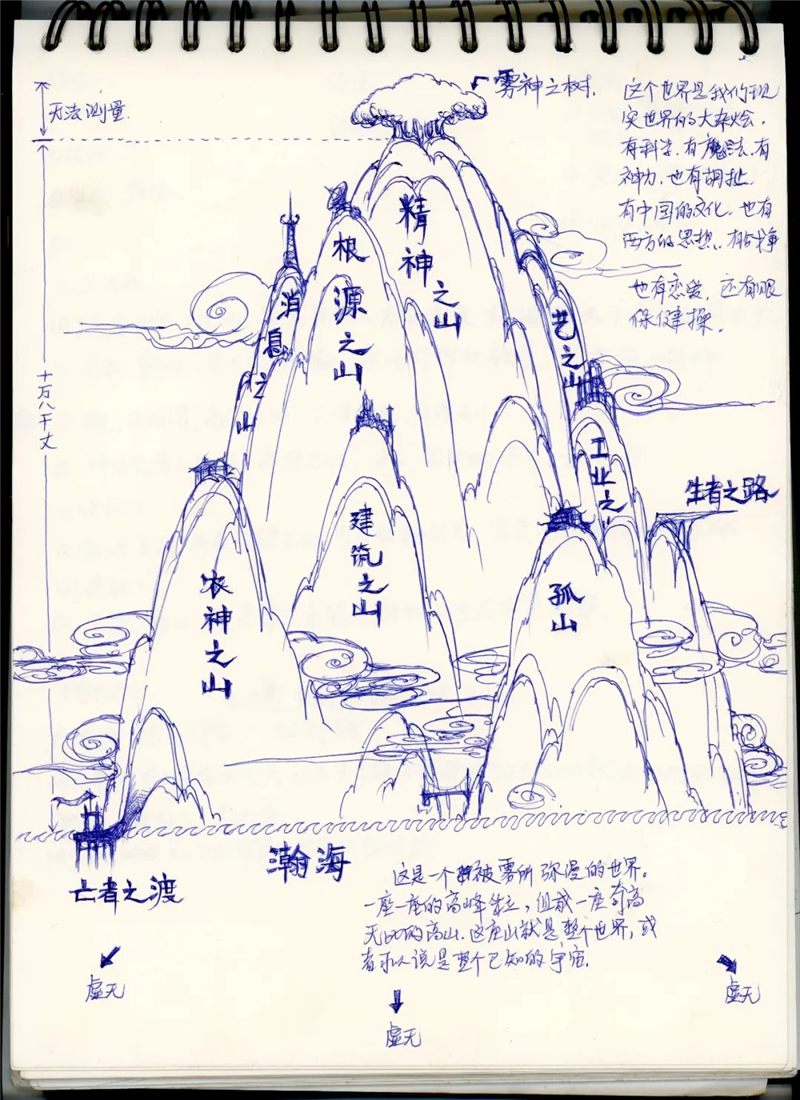 无法测量
雾神之树.
这个世界是我们现
实世界的大杂烩,
有科学.有魔法.有
神力.也有胡扯.
有中国的文化.也有
西方的思想..有战争
也有恋爱, 还有眼
保健操.
精神之山
根源之山
消息之山
艺之山
十万八千丈
工业之山
生者之路
建筑之山
孤山
农神之山
瀚海
亡者之渡
这是一个被雾所弥漫的世界。
一座一座的高峰耸立,组成一座奇高
无比的高山.这座山就是整个世界,或
者可以说是整个已知的宇宙.
虚无
虚无
虚无